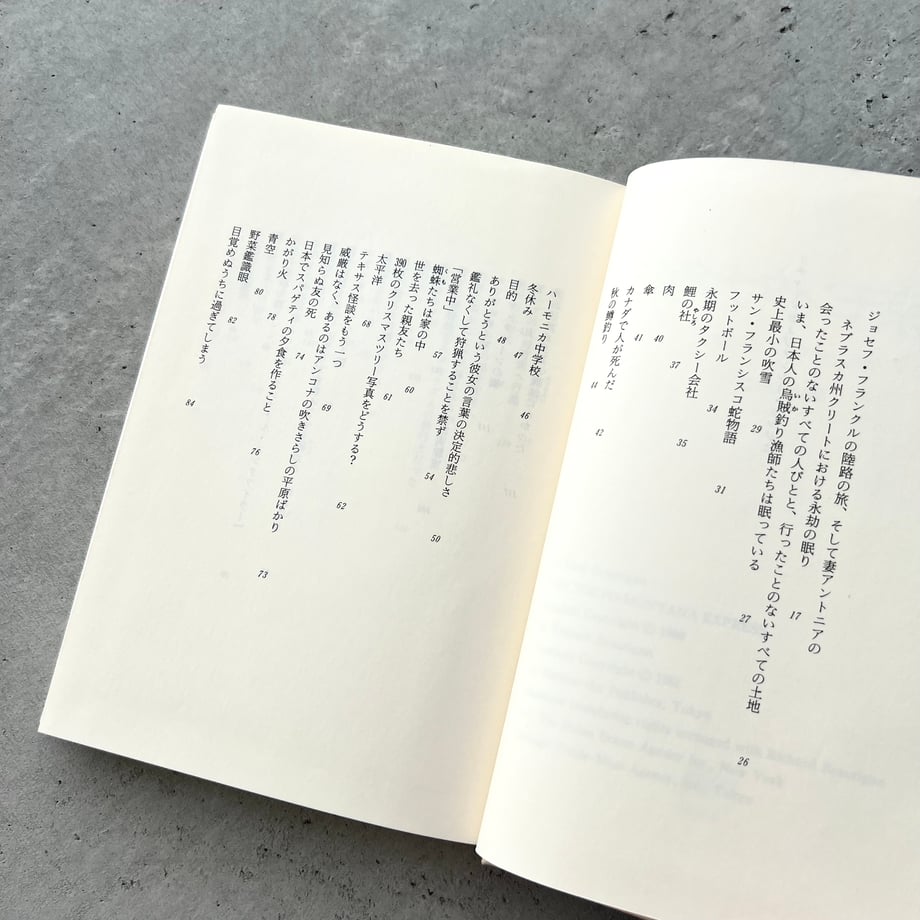 ジョセフ・フランクルの陸路の旅、そして妻アントニアの
ネブラスカ州クリートにおける永劫の眠り 17
会ったことのないすべての人びとと、行ったことのないすべての土地 26
いま、日本人の烏賊釣り漁師たちは眠っている 27
史上最小の吹雪 29
サン・フランシスコ蛇物語 31
フットボール 34
氷期のタクシー会社 35
鯉の社 37
肉 40
傘 41
カナダで人が死んだ 42
秋の鱒釣り 44
ハーモニカ中学校 46
冬休み 47
目的 48
ありがとうという彼女の言葉の決定的悲しさ 50
鑑札なくして狩猟することを禁ず 54
「営業中」 57
蜘蛛たちは家の中 60
世を去った親友たち 61
390枚のクリスマスツリー写真をどうする? 62
太平洋 68
テキサス怪談をもう一つ 69
威厳はなく、あるのはアンコナの吹きさらしの平原ばかり 73
見知らぬ友の死 74
日本でスパゲティの夕食を作ること 76
かがり火 78
青空 80
野菜鑑識眼 82
目覚めぬうちに過ぎてしまう 84